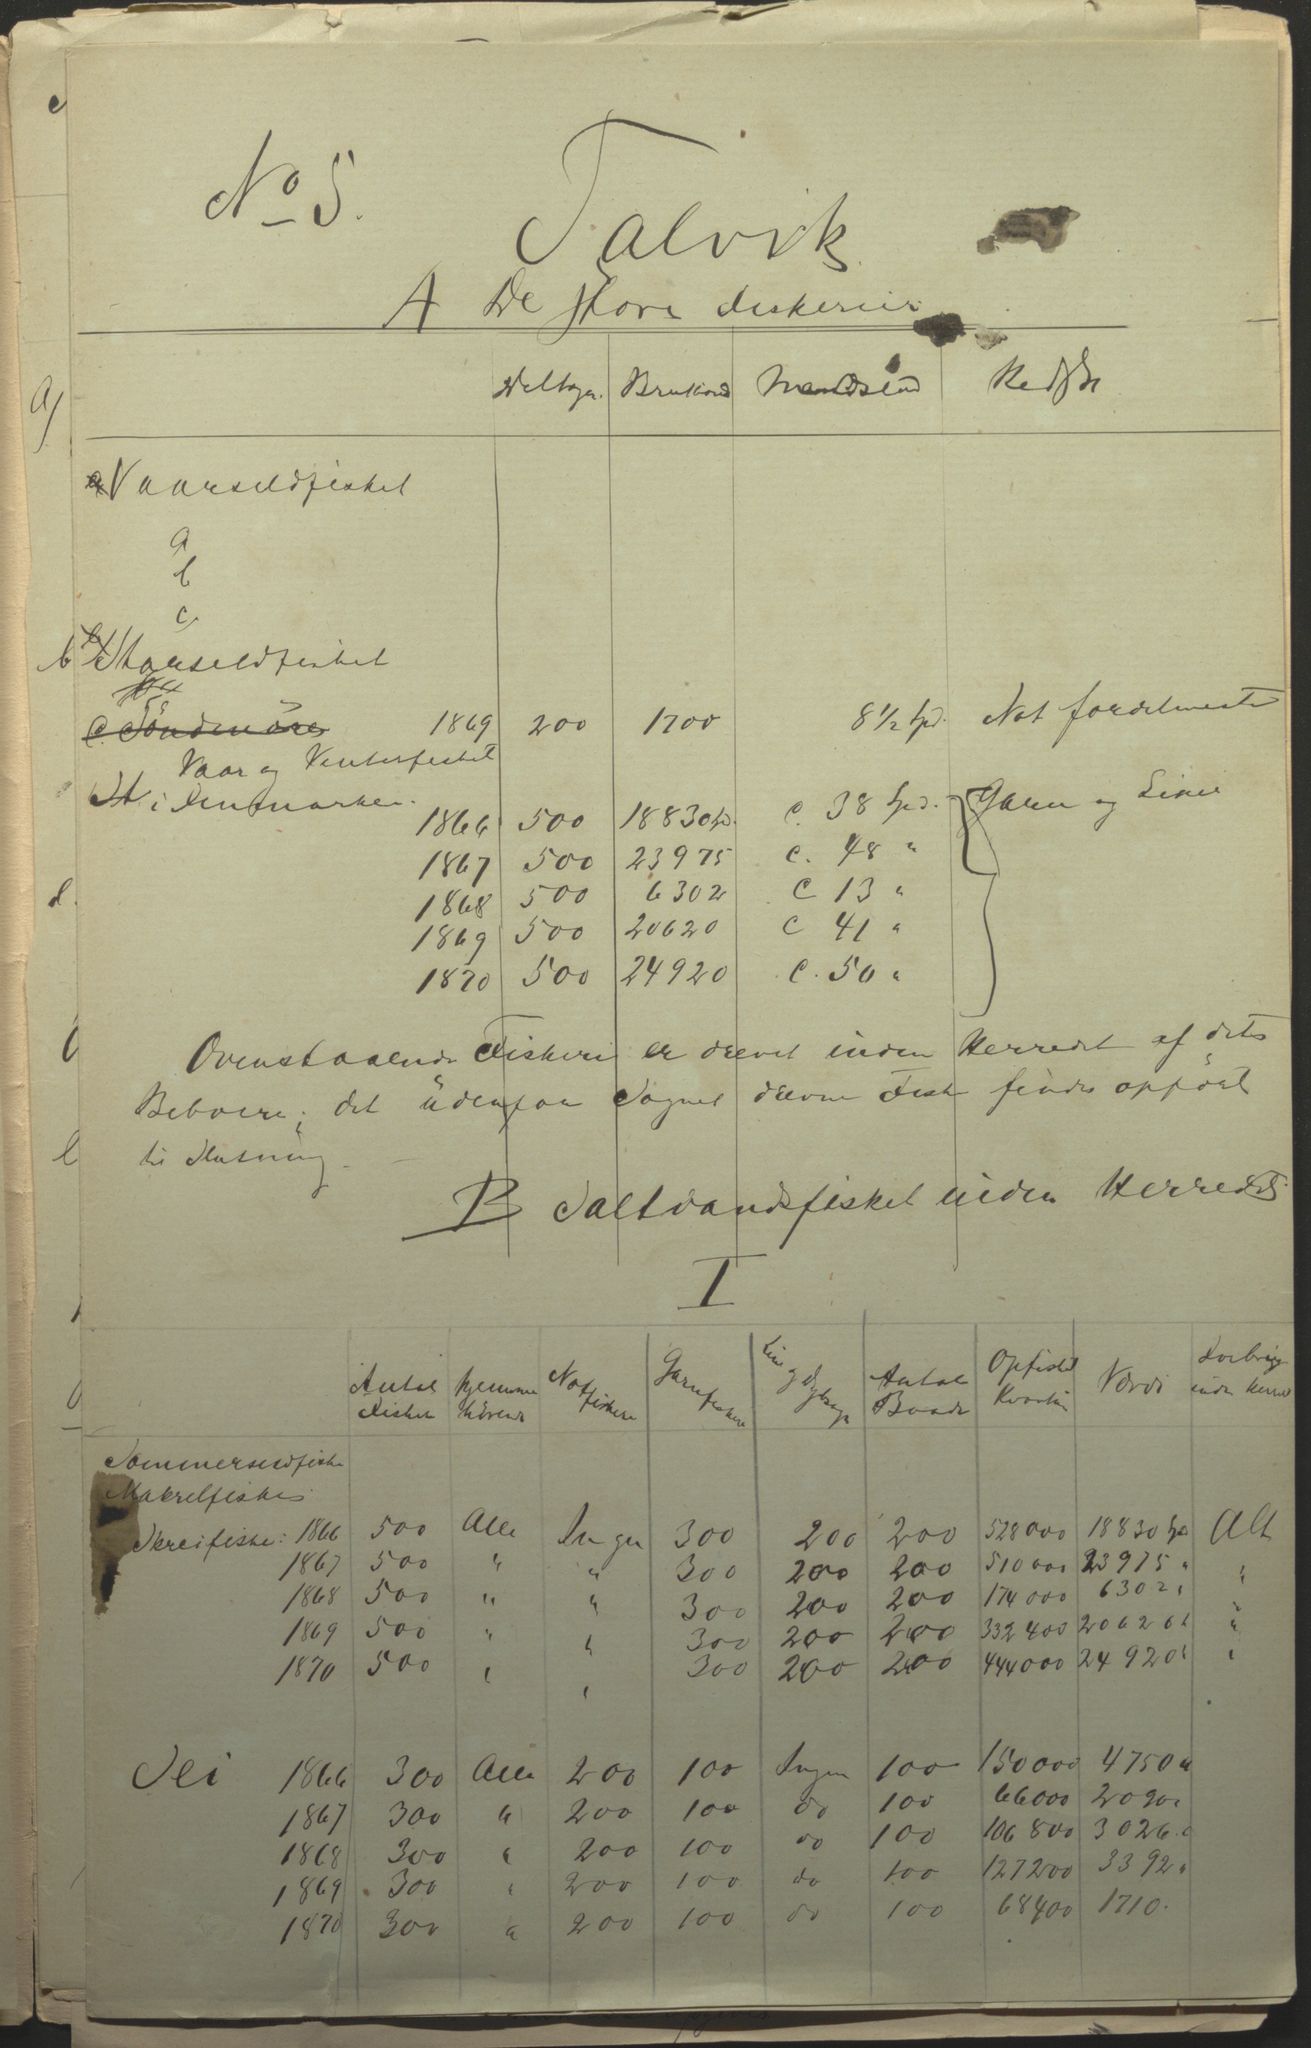 No 5.
Talvik
A De store Fiskerier
Deltager. Bruttoudb Mandslod Redskb
Vaarsildfisket
a
b
c
b Storsildfisket
c. Søndmøres 1869 200 1700 8 1/2 spd. Not fordetmeste
Vaar og Vinterfisket
i Finmarken.
1866 500 18830 spd. c. 38 spd. Garn og Liner
1867 500 23975 c. 48 "
1868 500 6302 c 13 "
1869 500 20620 c 41 "
1870 500 24920 c. 50 "
Ovenstaaende Fiskeri er drevet inden Herredet af dets
Beboere; det udenfor Sognet drevne Fiske findes opført
til Slutning.
B Saltvandsfisket inden Herredet
I
Antal Fiskere hjemme hörende Notfiskere Garnfiskere Line og Dybsagn Antal Baade Opfisket Kvantum Værdi Forbrug inden Herred
Sommersildfiske
Makrelfiske
Skreifiske: 1866 500 Alle Ingen 300 200 200 528000 18830 spd Alt
1867 500 " " 300 200 200 510000 23975 " "
1868 500 " " 300 200 200 174000 6302 " "
1869 500 " " 300 200 200 332400 20620 " "
1870 500 " " 300 200 200 444000 24920 " "
Sei 1866 300 Alle 200 100 Ingen 100 150000 4750 "
1867 300 " 200 100 do 100 66000 2090 "
1868 300 " 200 100 do 100 106800 3026 "
1869 300 " 200 100 do 100 127200 3392 "
1870 300 " 200 100 do 100 68400 1710.